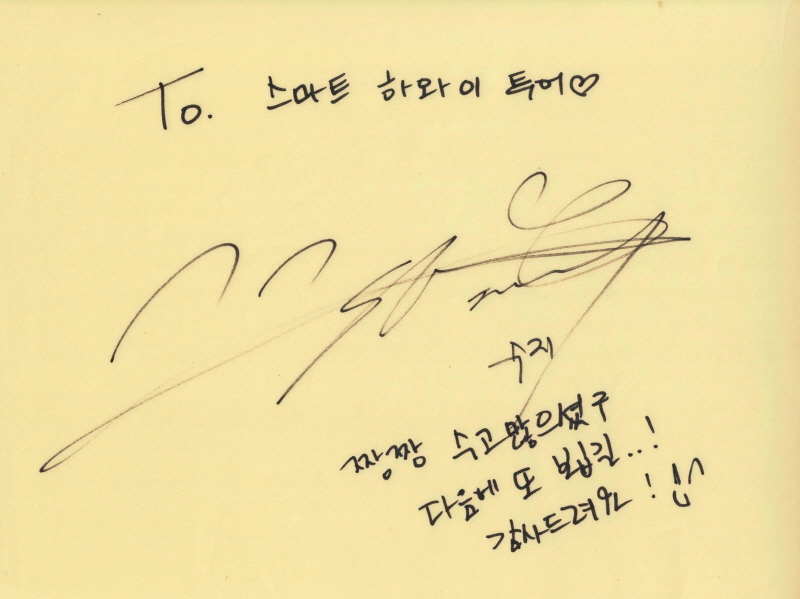 To. 스마트 하와이 투어♡
수지
짱짱 수고많으셨구
다음에 또 뵙길..!
감사드려요!